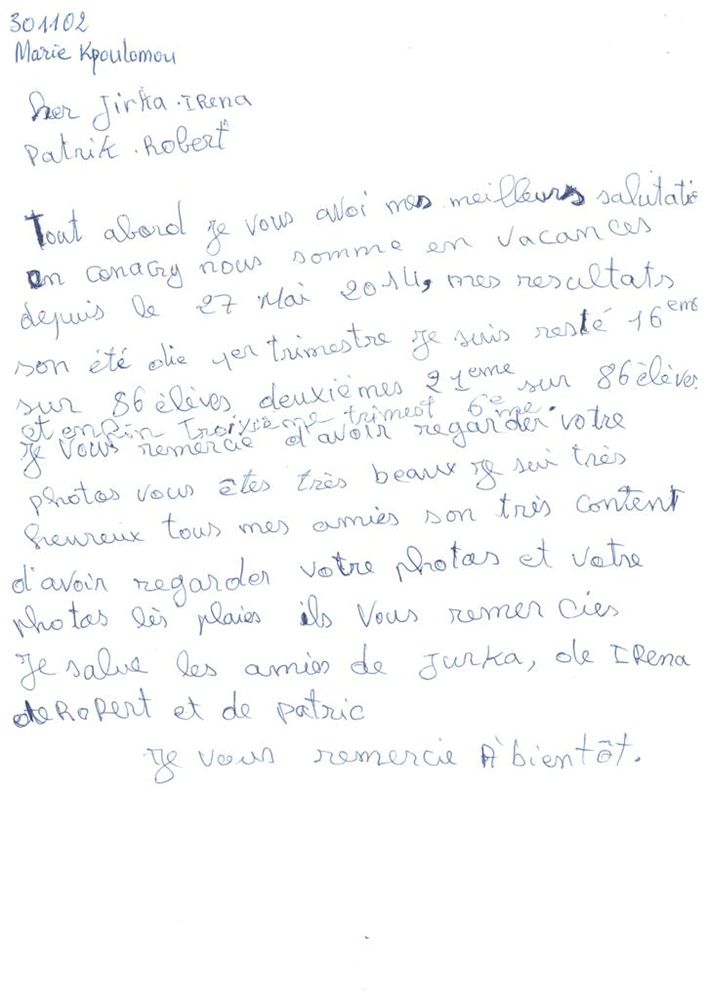 301102
Marie Kpoulomou
her Jirka . IRena
Patrik . Robert
Tout abord je vous avoi mes meilleurs salutatio
en conacry nous somme en vacances
depuis le 27 Mai 2014, mes resultats
son été die 1er trimestre je suis resté 16 eme
sur 86 élèves deuxièmes 21eme sur 86 élèves
et enfin Troixième trimest 6ème
Je vous remercie d'avoir regarder votre
photos vous êtes très beaux je sui très
heureux tous mes amies son très content
d'avoir regarder votre photos et votre
photos lès plaies ils vous remercies
Je salue les amies de Jurka, de IRena
de RoPert et de Patric
Je vous remercie A bientôt.